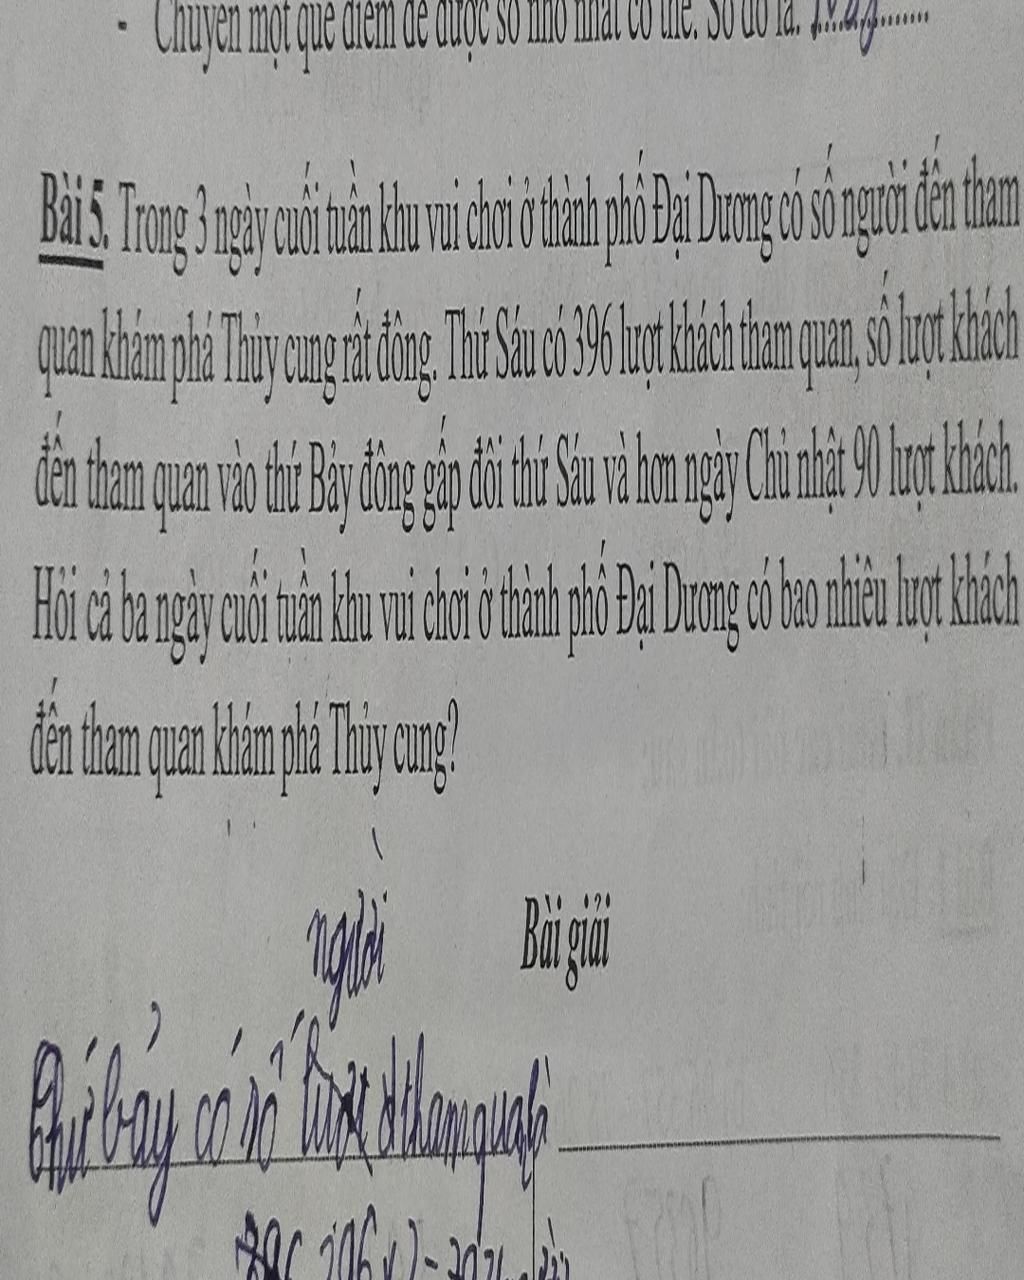 - Chuyển một que diêm để được số nhỏ nhất có thể. Số đó là:
Bài 5. Trong 3 ngày cuối tuần khu vui chơi ở thành phố Đại Dương có số người đến tham
quan khám phá Thủy cung rất đông. Thứ Sáu có 396 lượt khách tham quan, số lượt khách
đến tham quan vào thứ Bảy đông gấp đôi thứ Sáu và hơn ngày Chủ nhật 90 lượt khách.
Hỏi cả ba ngày cuối tuần khu vui chơi ở thành phố Đại Dương có bao nhiêu lượt khách
đến tham quan khám phá Thủy cung?
Bài giải
người
Thứ bảy có số tham quan là